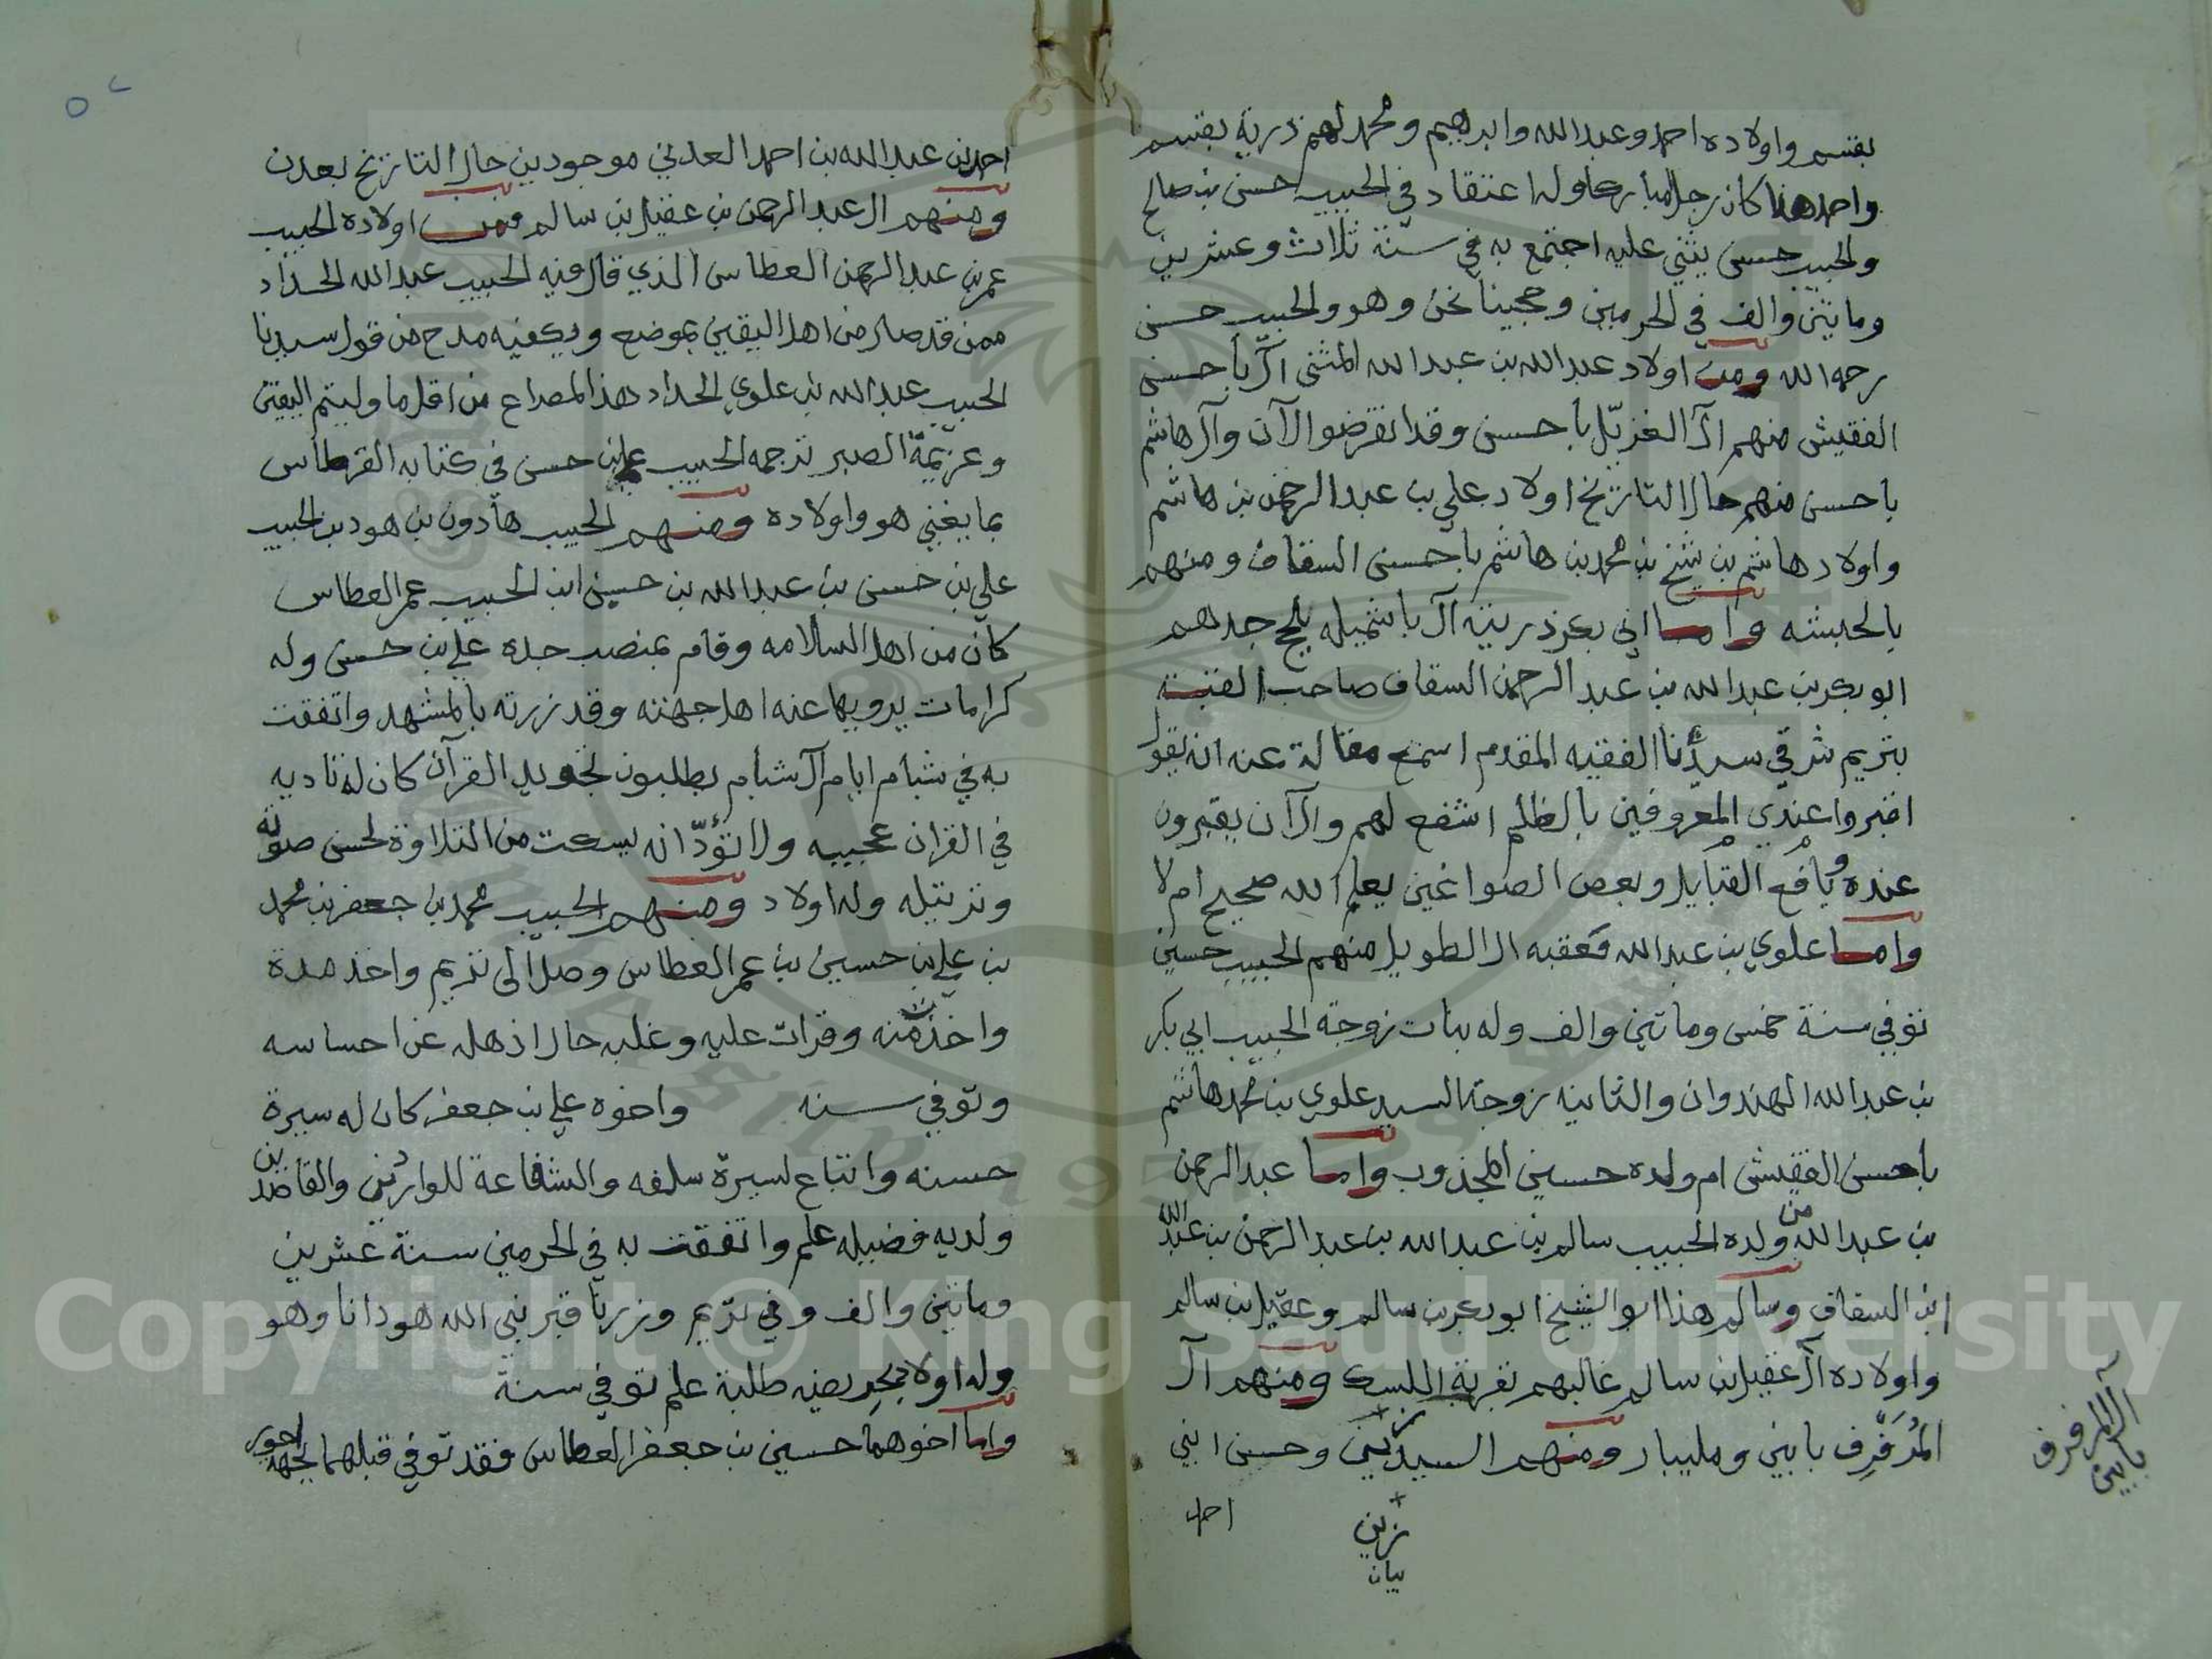 بقسم واولاده احمد وعبدالله وابراهيم ومحمد لهم ذرية بقسم
واحمد هذا كان رجل مباركا وله اعتقاد في الحبيب حسن بن صالح
والحبيب حسن يثني عليه اجتمع به في سنة ثلاث وعشرين
وماتين والف في الحرمين وحجينا نحن وهو والحبيب حسن
رحمه الله ومن اولاد عبدالله بن عبدالله المثنى آل باحسن
الفقيش منهم آل الغزيّل باحسن وقد انقرضوا الآن وآل هاشم
باحسن منهم حال التاريخ اولاد علي بن عبدالرحمن بن هاشم
واولاد هاشم بن شيخ بن محمد بن هاشم باحسن السقاف ومنهم
بالحبشه واما ابي بكر ذريته آل باشميله بلّحج جدهم
ابوبكر بن عبدالله بن عبدالرحمن السقاف صاحب القبة
بتريم شرقي سيدنا الفقيه المقدم اسمع مقالة عنه انه يقول
اقبروا عندي المعروفين بالظلم اشفع لهم والآن يقبرون
عنده يافع القبايل وبعض الصواغين يعلم الله صحيح ام لا
واما علوي بن عبدالله فعقبه ال الطويل منهم الحبيب حسين
توفي سنة خمس وماتين والف وله بنات زوجة الحبيب ابي بكر
بن عبدالله الهندوان والثانيه زوجة السيد علوي بن محمد هاشم
باحسن الفقيش ام ولده حسين المجذوب واما عبدالرحمن
بن عبدالله من ولده الحبيب سالم بن عبدالله بن عبدالرحمن بن عبدالله
ابن السقاف وسالم هذا ابو الشيخ ابوبكر بن سالم وعقيل بن سالم
واولاده آل عقيل بن سالم غالبهم بقرية اللسك ومنهم آل
المُرَفْرِف بابين ومليبار ومنهم السيد زين وحسن ابني
آل المرفرف
بابين
زين
بيان
احمد
٥٢
احمد بن عبدالله بن احمد العدني موجودين حال التاريخ بعدن
ومنهم ال عبدالرحمن بن عقيل بن سالم فمن اولاده الحبيب
عمر بن عبدالرحمن العطاس الذي قال فيه الحبيب عبدالله الحداد
ممن قد صار من اهل اليقين بموضع ويكفيه مدح من قول سيدنا
الحبيب عبدالله بن علوي الحداد هذا المصراع من اقل ما وليتم اليقين
وعزيمة الصبر ترجمه الحبيب علي بن حسن في كتابه القرطاس
بما يغني هو واولاده ومنهم الحبيب هادون بن هود بن الحبيب
علي بن حسن بن عبدالله بن حسين ابن الحبيب عمر العطاس
كان من اهل السلامه وقام بمنصب جده علي بن حسن وله
كرامات يرويها عنه اهل جهته وقد زرته بالمشهد واتفقت
به في شبام ايام آل شبام يطلبون تجويد القرآن كان له تاديه
في القران عجيبه ولا تودّ انه يسكت من التلاوة لحسن صوته
وترتيله وله اولاد ومنهم الحبيب محمد بن جعفر بن محمد
بن علي بن حسين بن عمر العطاس وصل الى تريم واخذ مدة
واخذت منه وقرات عليه وغلبه حال اذهله عن احساسه
وتوفي سنه واخوه علي بن جعفر كان له سيرة
حسنه واتباع لسيرة سلفه والشفاعة للواردين والقاصدين
ولديه فضيله علم واتفقت به في الحرمين سنة عشرين
وماتين والف وفي تريم وزرنا قبر نبي الله هود انا وهو
وله اولاد بحريضه طلبة علم توفي سنة
واما اخوهما حسين بن جعفر العطاس فقد توفي قبلهما بجهة
Copyright © King Saud University